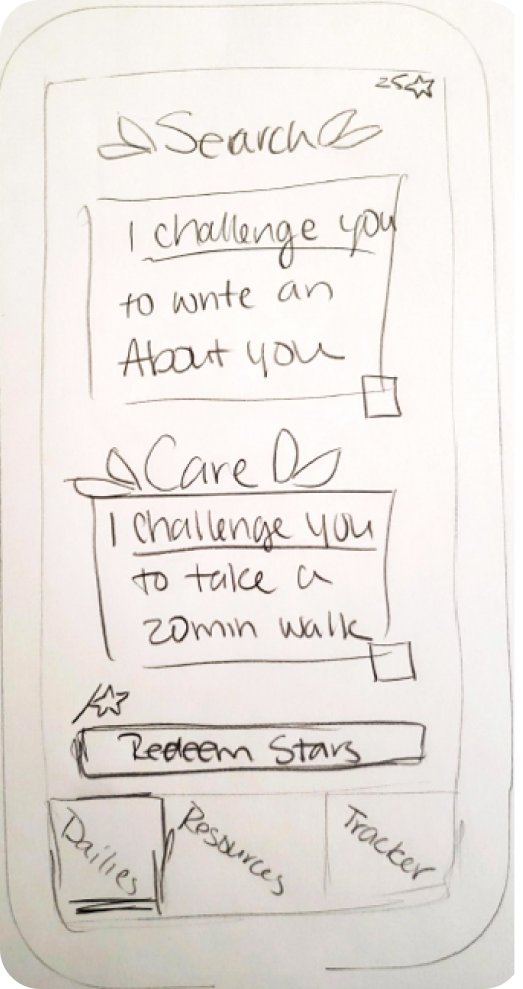 25
Search
I challenge you
to write an
About you
Care
I challenge you
to take a
20min walk
Redeem Stars
Dailies
Resources
Tracker